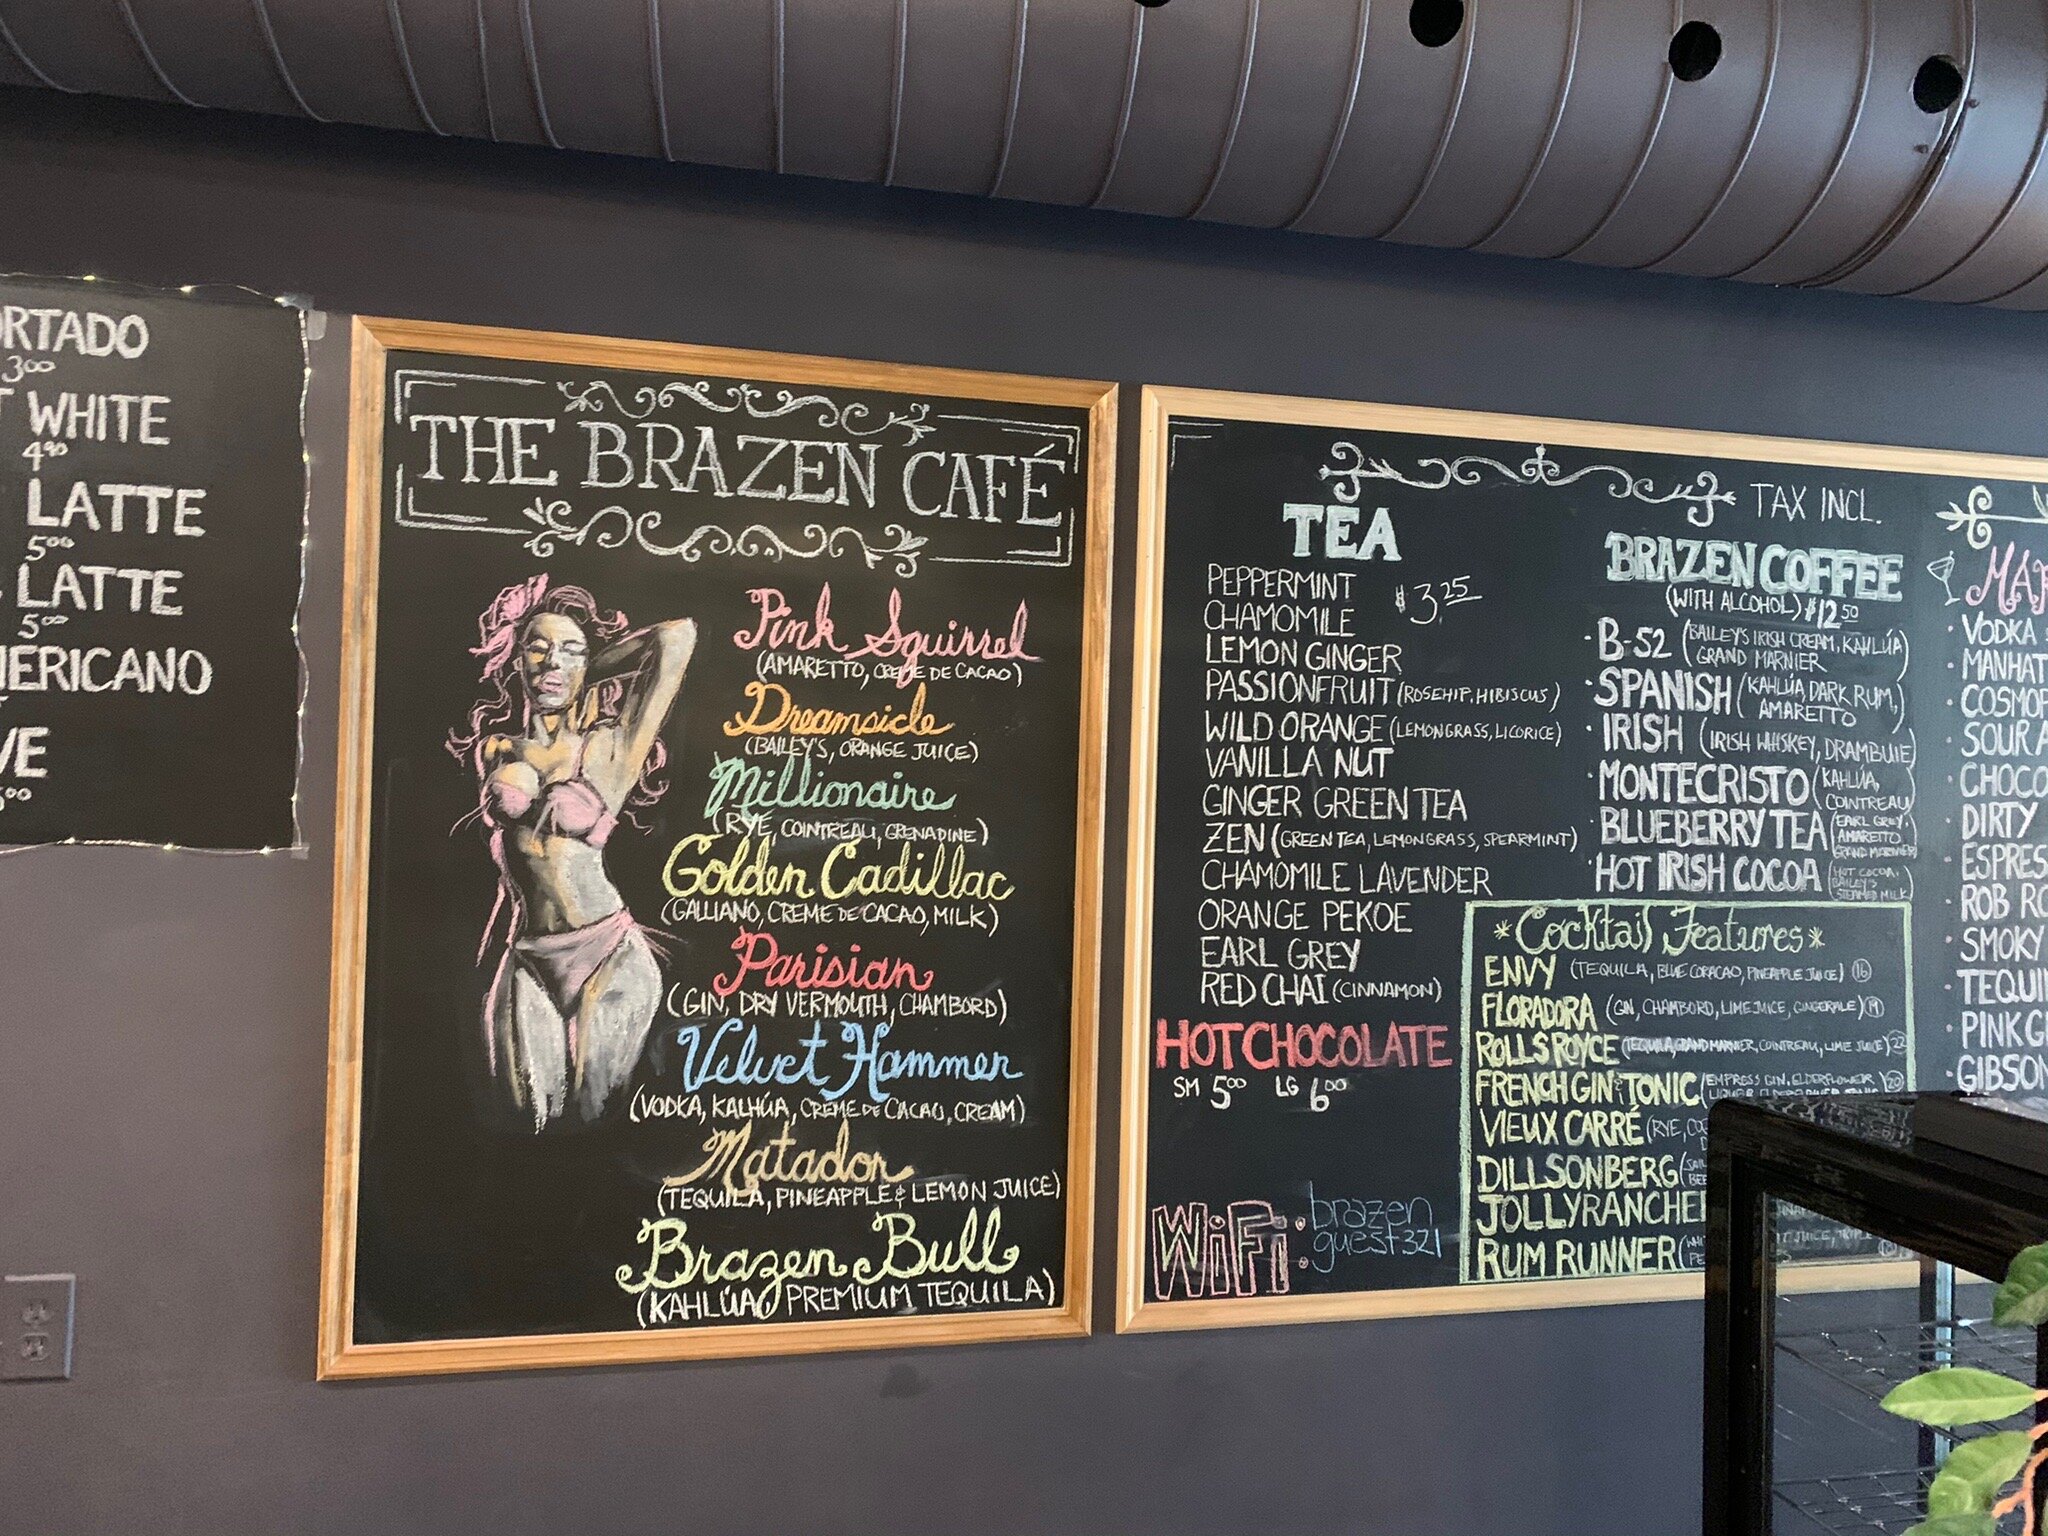 RTADO
3.00
WHITE
4.90
LATTE
5.00
LATTE
5.00
ERICANO
VE
THE BRAZEN CAFÉ
Pink Squirrel
(AMARETTO, CREME DE CACAO)
Dreamsicle
(BAILEY'S, ORANGE JUICE)
Millionaire
(RYE, COINTREAU, GRENADINE)
Golden Cadillac
(GALLIANO, CREME DE CACAO, MILK)
Parisian
(GIN, DRY VERMOUTH, CHAMBORD)
Velvet Hammer
(VODKA, KALHÚA, CREME DE CACAO, CREAM)
Matador
(TEQUILA, PINEAPPLE & LEMON JUICE)
Brazen Bull
(KAHLÚA, PREMIUM TEQUILA)
TEA
PEPPERMINT $3.25
CHAMOMILE
LEMON GINGER
PASSIONFRUIT (ROSEHIP, HIBISCUS)
WILD ORANGE (LEMONGRASS, LICORICE)
VANILLA NUT
GINGER GREEN TEA
ZEN (GREEN TEA, LEMONGRASS, SPEARMINT)
CHAMOMILE LAVENDER
ORANGE PEKOE
EARL GREY
RED CHAI (CINNAMON)
HOT CHOCOLATE
SM 5.00 LG 6.00
WiFi: brazen
guest321
TAX INCL.
BRAZEN COFFEE
(WITH ALCOHOL) $12.50
· B-52 (BAILEY'S IRISH CREAM, KAHLÚA)
GRAND MARNIER
· SPANISH (KAHLÚA, DARK RUM,)
AMARETTO
· IRISH (IRISH WHISKEY, DRAMBUIE)
· MONTECRISTO (KAHLÚA,
COINTREAU)
· BLUEBERRY TEA (EARL GREY,
AMARETTO
GRAND MARNIER)
· HOT IRISH COCOA (HOT COCOA,
BAILEY'S
STEAMED MILK)
*Cocktail Features*
ENVY (TEQUILA, BLUE CORACAO, PINEAPPLE JUICE) 16
FLORADORA (GIN, CHAMBORD, LIME JUICE, GINGERALE) 19
ROLLS ROYCE (TEQUILA, GRAND MARNIER, COINTREAU, LIME JUICE) 22
FRENCH GIN & TONIC (EMPRESS GIN, ELDERFLOWER 20
VIEUX CARRÉ (RYE,
DILLSONBERG
JOLLYRANCHE
RUM RUNNER
MAR
· VODKA
· MANHAT
· COSMO
· SOUR A
· CHOCO
· DIRTY
· ESPRES
· ROB RO
· SMOKY
· TEQUI
· PINK G
· GIBSON